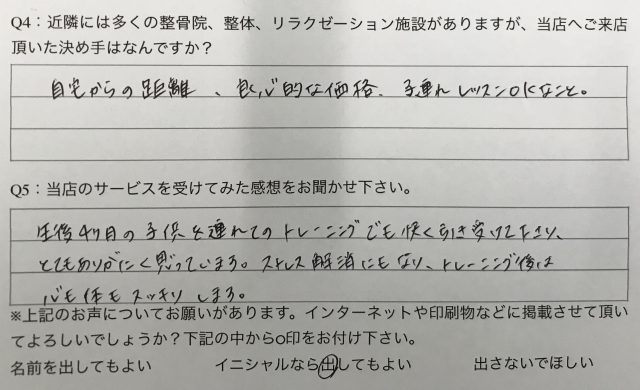 Q4：近隣には多くの整骨院、整体、リラクゼーション施設がありますが、当店へご来店
頂いた決め手はなんですか？
自宅からの距離、良心的な価格、子連れレッスンOKなこと。
Q5：当店のサービスを受けてみた感想をお聞かせ下さい。
生後4ヶ月の子供を連れてのトレーニングでも快く引き受けて下さり、
とてもありがたく思っています。ストレス解消にもなり、トレーニング後は
心も体もスッキリします。
※上記のお声についてお願いがあります。インターネットや印刷物などに掲載させて頂い
てよろしいでしょうか？下記の中からo印をお付け下さい。
名前を出してもよい　イニシャルなら出してもよい　出さないでほしい